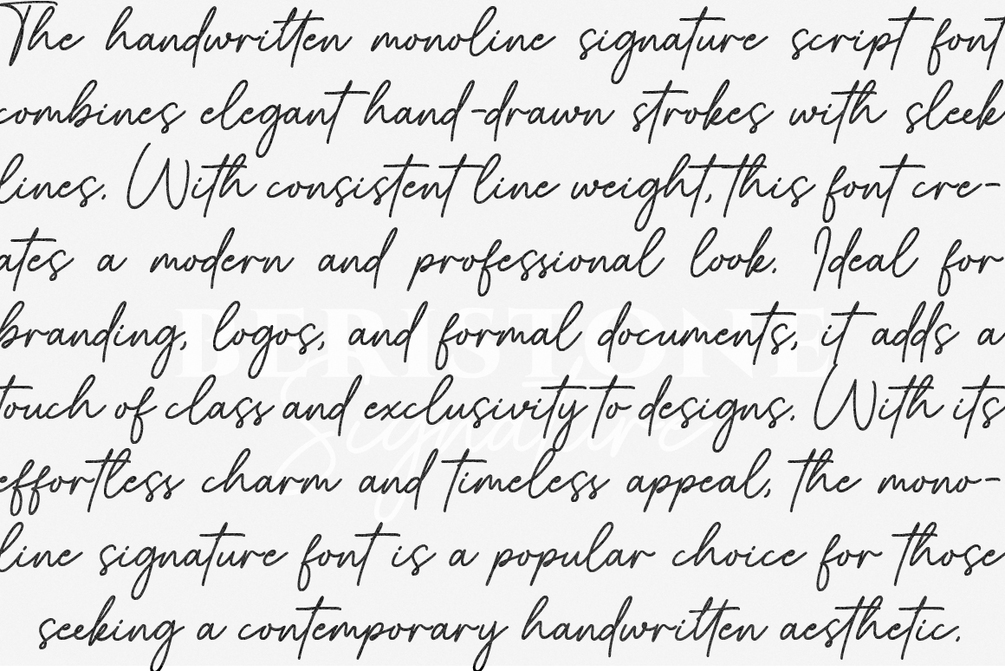 The handwritten monoline signature script font
combines elegant hand-drawn strokes with sleek
lines. With consistent line weight, this font cre-
ates a modern and professional look. Ideal for
branding, logos, and formal documents, it adds a
touch of class and exclusivity to designs. With its
effortless charm and timeless appeal, the mono-
line signature font is a popular choice for those
seeking a contemporary handwritten aesthetic.
BERISTONE
Signature